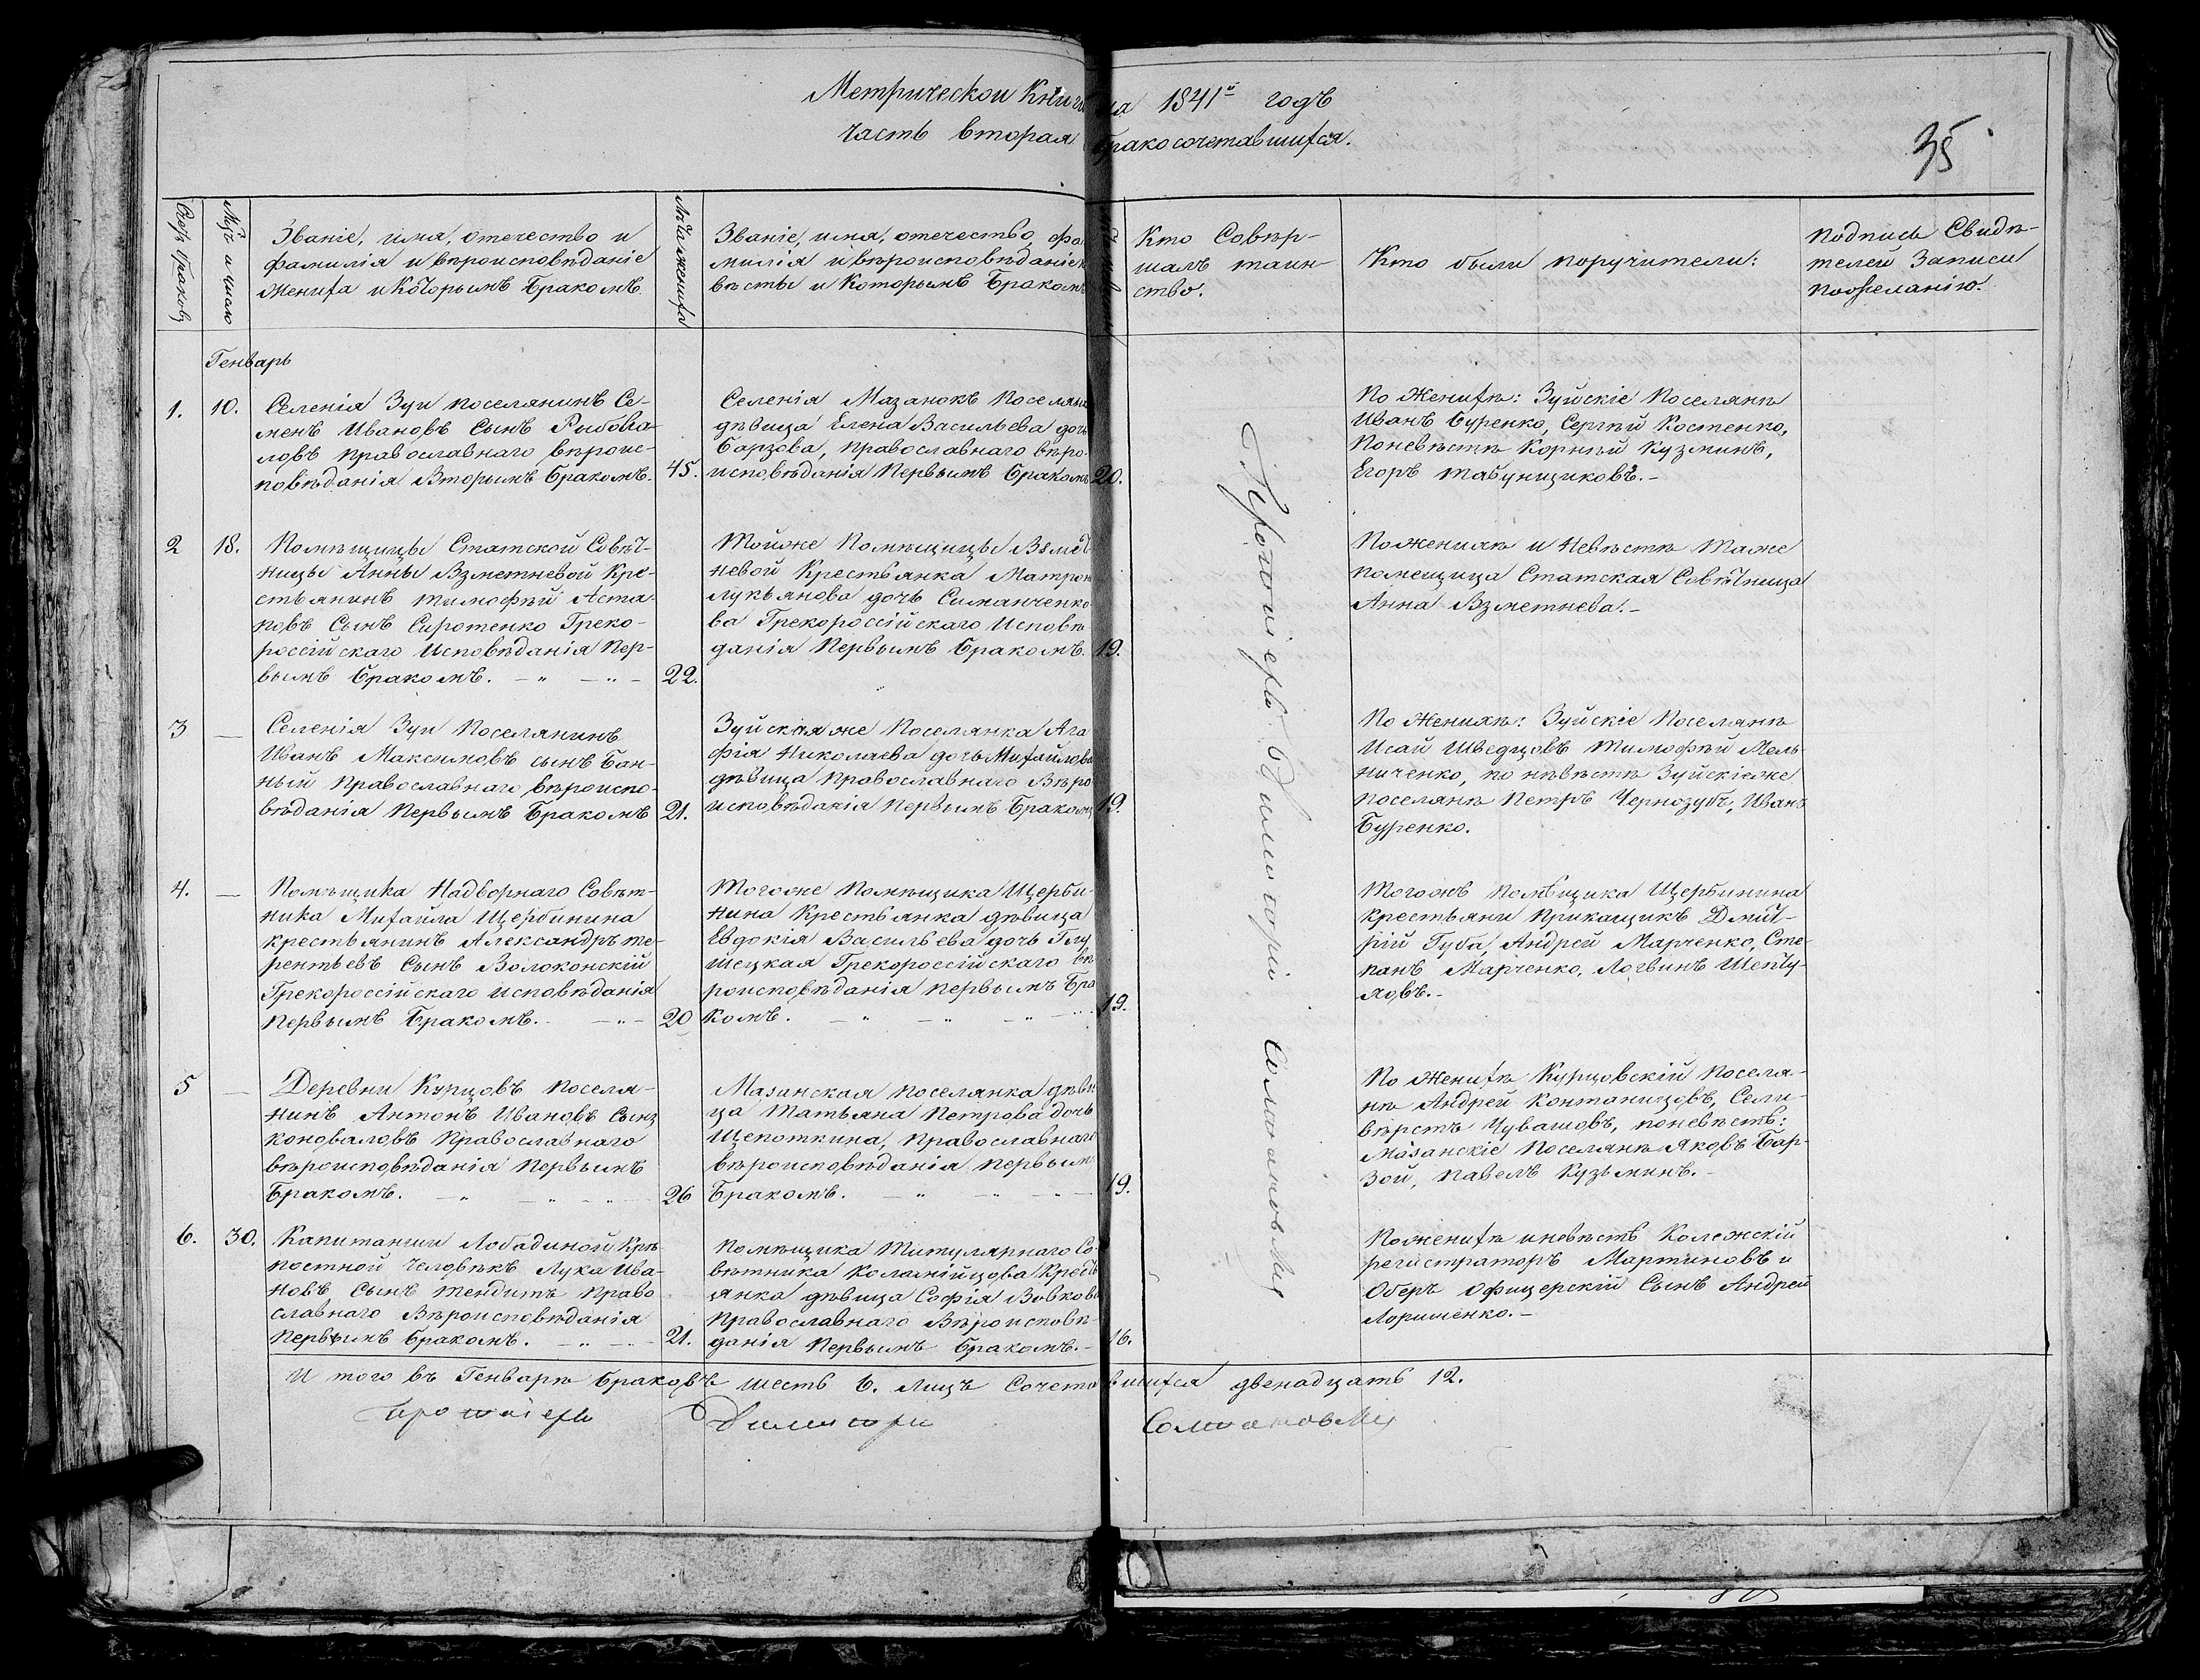 Метрической Книги на 1841й годъ
Часть вторая о бракосочетавшихся.
35
Счетъ браковъ
Мѣц: и число
Званіе, имя, отечество и
фамилія и вѣроисповѣданіе
Жениха и которымъ Бракомъ.
Лѣта жениха
Званіе, имя, отечество, фа-
милія и вѣроисповѣданіе не
вѣсты и которымъ Бракомъ
Кто Совѣр-
шалъ таин-
ство.
Кто были поручители:
Подпись Свидѣ-
телей Записи
пожеланію.
Генварь
1.
10.
Селенія Зуи поселянинъ Се-
менъ Ивановъ Сынъ Рыбова-
ловъ православнаго вѣроис-
повѣданія Вторымъ Бракомъ.
45.
Селенія Мазанокъ Поселянка
дѣвица Елена Васильева дочь
Барзова, православнаго вѣро-
исповѣданія Первымъ Бракомъ
20.
По Женихѣ: Зуйскіе Поселянѣ
Иванъ Буренко, Сергѣй Костенко,
Поневѣстѣ Корнѣй Кузминъ,
Егоръ Табунщиковъ.-
2
18.
Помѣщицы Статской Совѣт-
ницы Анны Взметневой Кре-
стьянинъ Тимофѣй Аста-
повъ Сынъ Сиротенко Греко-
россійскаго Исповѣданія Пер-
вымъ Бракомъ.
22.
Тойже Помѣщицы Взмет-
невой Крестьянка Матрона
Лукьянова дочь Симанченко-
ва Грекороссійскаго Исповѣ
данія Первымъ Бракомъ.
19.
Поженихѣ и Невѣстѣ Таже
помещица Статская Совѣтница
Анна Взметнева.-
3
—
Селенія Зуи Поселянинъ
Иванъ Максимовъ сынъ Бан-
ный Православнаго вѣроиспо-
вѣданія Первымъ Бракомъ
21.
Зуйская же Поселянка Ага
фія Николаева дочь Михайлова
дѣвица Православнаго Вѣро
исповѣданія Первымъ Бракомъ
19.
По Женихѣ: Зуйскіе Поселянѣ
Исай Шведцовъ Тимофѣй Мель
ниченко, по нѣвѣстѣ Зуйскіеже
поселянѣ Петръ Чернозубъ, Иванъ
Буренко.
4.
—
Помѣщика Надворнаго Совѣт-
ника Михайла Щербинина
крестьянинъ Александръ Те-
рентьевъ Сынъ Волоконскій
Грекороссійскаго исповѣданія
Первымъ Бракомъ.
20
Тогоже Помѣщика Щерби-
нина Крестьянка дѣвица
Евдокія Васильева дочь
Грекороссійскаго вѣ
роисповѣданія первымъ Бра
комъ.
19.
Тогожъ помѣщика Щербинина
крестьяни Прикащикъ Дмит-
рій Губа, Андрей Марченко, Сте-
панъ Марченко, Логвинъ Шепту-
ховъ.-
5
—
Деревни Курцовъ Поселя-
нинъ Антонъ Ивановъ Сынъ
Коноваловъ Православнаго
вѣроисповѣданія Первымъ
Бракомъ.
26
Мазанская поселянка дѣви
ца Татьяна Петрова дочь
Щепоткина, Православнаго
вѣроисповѣданія первым
Бракомъ.
19.
По Женихѣ Курцовскій Поселя-
нѣ Андрей Сели-
вѣрстъ Чувашовъ, поневѣстѣ:
Мазанскіе Поселянѣ Яковъ Бар-
зой, Павелъ Кузьминъ.-
6.
30.
Капитанши Лобадиной Крѣ
постной Человѣкъ Лука Ива-
новъ Сынъ Тендитъ Право
славнаго Вѣроисповѣданія
Первымъ Бракомъ.
21.
Помѣщика Титулярнаго Со-
вѣтника Коламійцова Кресть
янка дѣвица Софія Вовкова
Православнаго Вѣроисповѣ-
данія Первымъ Бракомъ.-
16.
Поженихѣ иневѣстѣ Колежскій
регистраторъ Мартиновъ и
Оберъ офицерскій Сынъ Андрей
Лоришенко.-
Протоіерей Димитрій
И того въ Генварѣ браковъ шесть 6. лицъ Сочетавшихся двенадцать 12.
Протоіерей Димитри